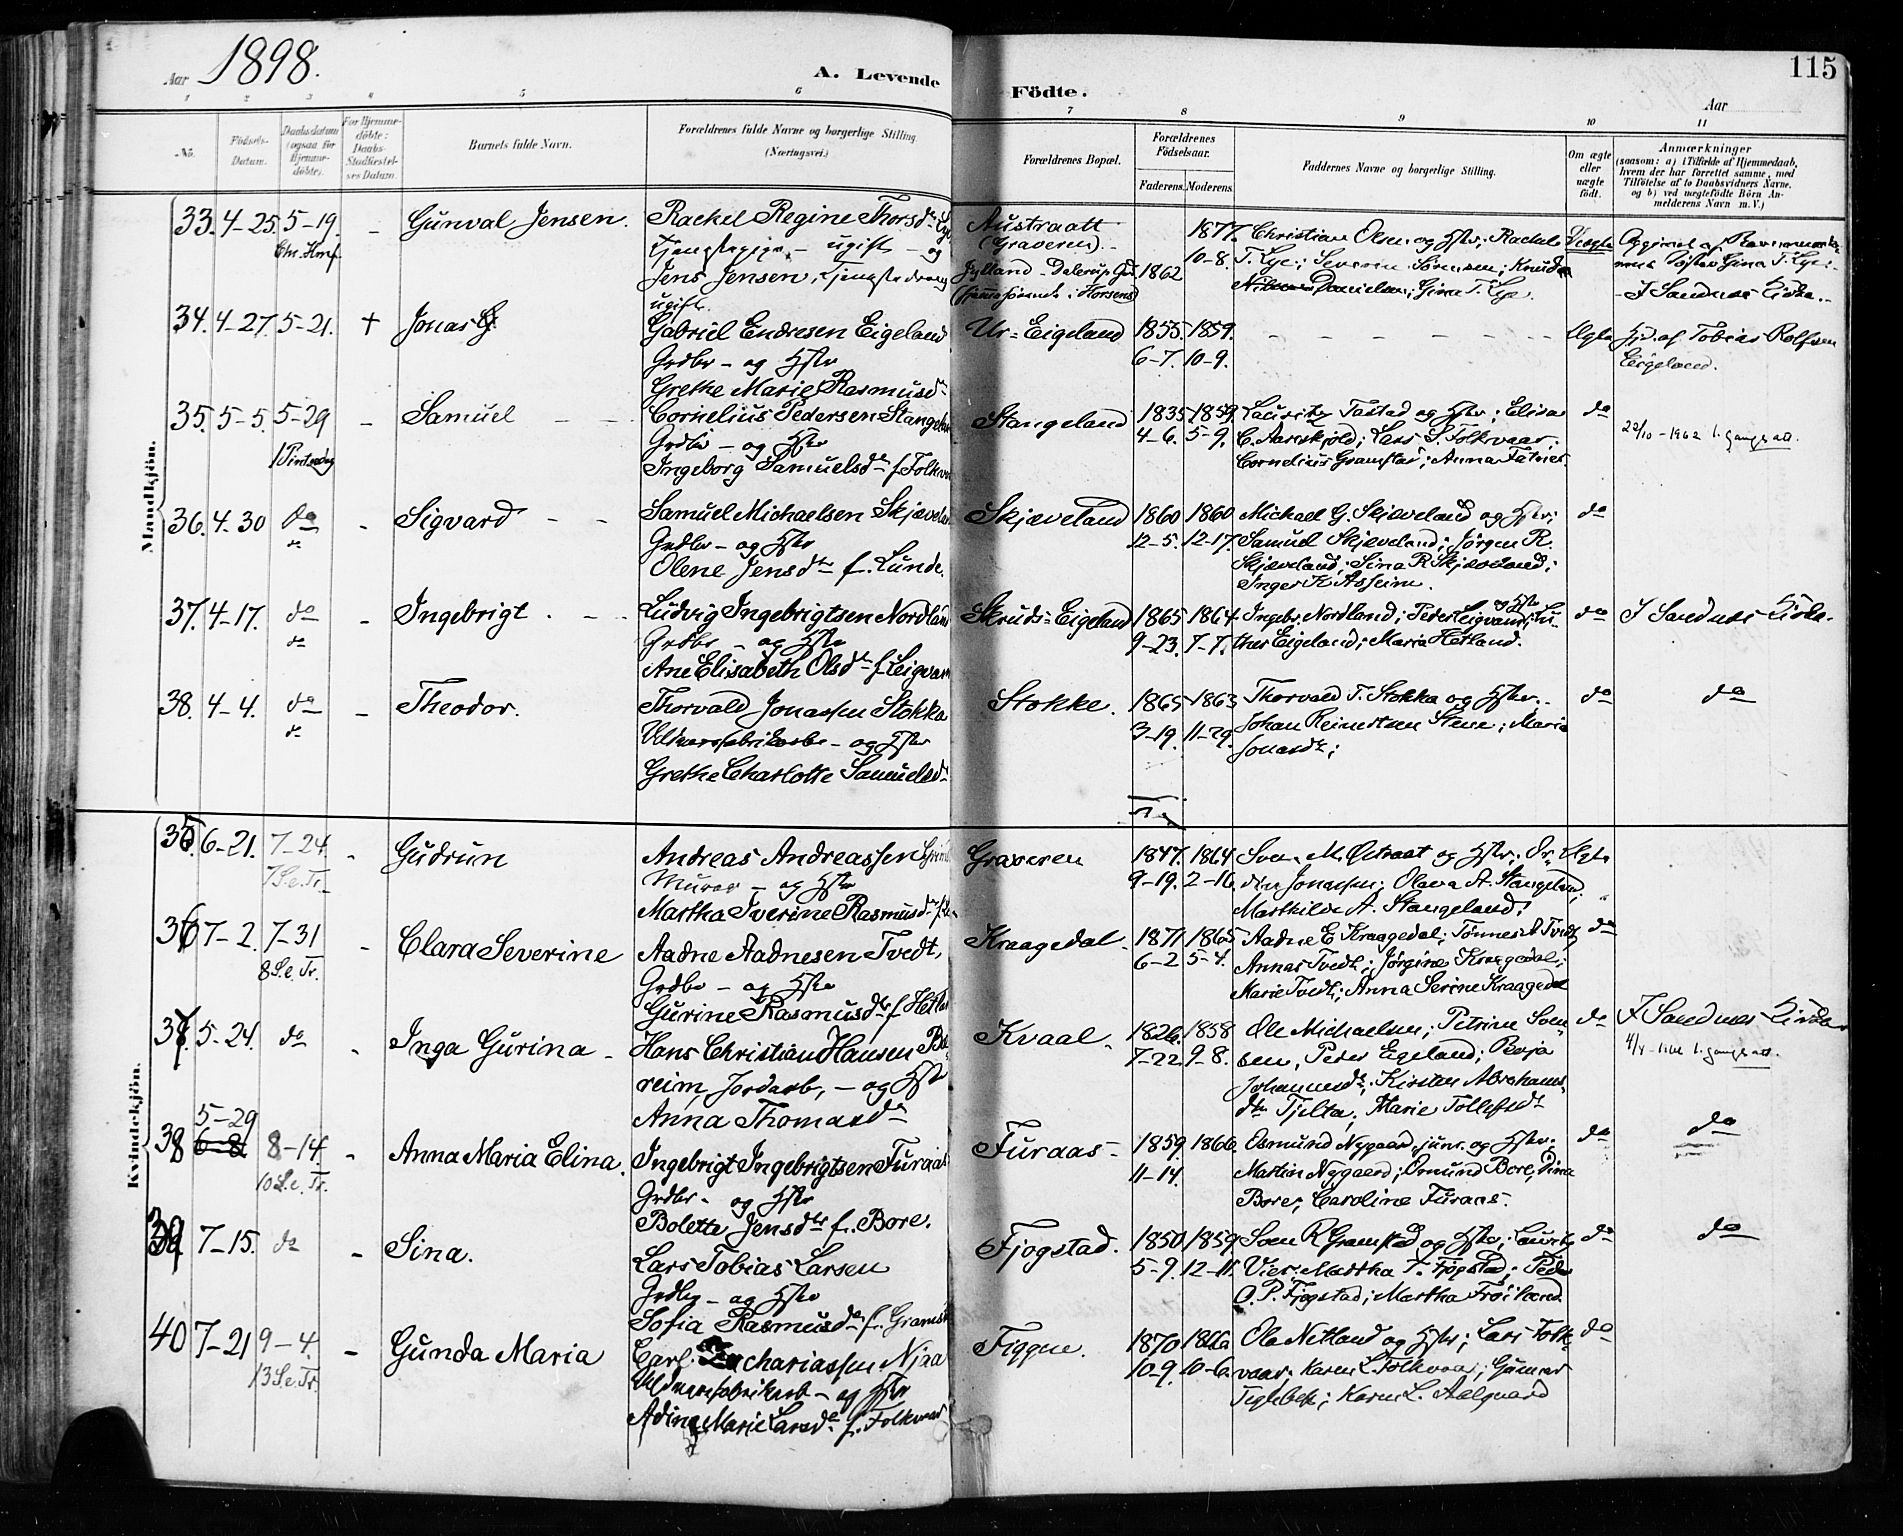 Aar 1898.
A. Levende Födte.
115
Aar
1 2 3 4 5 6 7 8 9 10 11
No.
Födsels-Datum.
Daabsdatum (ogsaa for Hjemmedöbte).
For Hjemmedöbte: Daabs-Stadfæstelses Datum.
Barnets fulde Navn.
Forældrenes fulde Navne og borgerlige Stilling.
(Næringsvei.)
Forældrenes Bopæl.
Forældrenes Födselsaar.
Faderens. Moderens.
Faddernes Navne og borgerlige Stilling.
Om ægte eller uægte födt.
Anmærkninger
(saasom: a) i Tilfælde af Hjemmedaab,
hvem der har forrettet samme, med
Tilföielse af to Daabsvidners Navne,
og b) ved uægtefödte Börn An-
melderens Navn m.V.)
Mandkjön.
33. 4-25. 5-19. - Gunval Jensen.
Chr. Hmf.
Rachel Regine Thorsdr Lye
Tjenestepige, - ugift - og
Jens Jensen, Tjenestedreng
ugift.
Austraatt
(Graveren).-
Jylland - Dalerup
(hjemmehörende i Horsens)
1862
1877.
10-8.
Christian Olsen og Hstr; Rachel
T. Lye; Severin Sörensen; Knud
Danielsen; Gina T. Lye.
Uægte
Opgivet af Barnemode-
rens Söster Gina T. Lye.
- I Sandnes Kirke.-
34. 4-27. 5-21. + Jonas
Gabriel Endresen Eigeland
Grdbr - og Hstr
Grethe Marie Rasmusdr
Ur-Eigeland
1855. 1859.
6-7. 10-9.
- - - - - -
Ægte
Hjd. af Tobias Rolfsen
Eigeland.
35. 5-5. 5-29 - Samuel - -
1 Pintsedag
Cornelius Pedersen Stangeland
Grdbr - og Hstr
Ingeborg Samuelsdr f. Folkvor
Stangeland
1835 1859
4-6. 5-9.
Lauritz Tastad og Hstr; Elisa
C. Aareskjold; Lars S. Folkvaar;
Cornelius Gramstad; Anna
do
22/10-1962 l. gangs att.
36. 4-30 do - Sigvard - -
do
Samuel Michaelsen Skjæveland
Grdbr - og Hstr
Olene Jensdtr f. Lunde.
Skjæveland
1860 1860
12-5. 12-17.
Michael G. Skjæveland og Hstr;
Samuel Skjæveland; Jörgen R.
Skjæveland; Sina R Skjæveland;
Inger K. Asheim.
do
37. 4-17. do - Ingebrigt. - -
do
Ludvig Ingebrigtsen Nordland
Grdbr - og Hstr
Ane Elisabeth Olsdr f. Leigvam
Skruds-Eigeland
1865 1864
9-23. 7-7.
Ingebr. Nordland; Peder Leigvam og Hstr; Lu-
ther Eigeland; Maria Hetland.
do
I Sandnes Kirke.
38. 4-4. do - Theodor.
do
Thorvald Jonassen Stokka
Uldvarefabrikarb. - og Hstr
Grethe Charlotte Samuelsdr
Stokke.
1865 1863
3-19. 11-29.
Thorvald T. Stokka og Hstr.
Johan Reinertsen Stene; Maria
Jonasdr;
do
do
Kvindekjön.
35. 6-21. 7-24. - Gudrun
7 S.e.Tr.
Andreas Andreassen
Murer - og Hstr
Martha Iverine Rasmusdr
Graveren
1847. 1864
9-19. 2-16.
Sven M. Östraat og Hstr; Or-
din Jonassen; Olava A. Stangeland;
Marthilde A. Stangeland.
Ægte
36 7-2. 7-31 - Clara Severine
8 S.e.Tr.
Aadne Aadnesen Tvedt,
Grdbr - og Hstr
Gurine Rasmusdtr f Hetland
Kraagedal.
1871 1865
6-2 5-4.
Aadne E Kraagedal; Tönnes A Tvedt;
Annas Tvedt; Jörgine Kraagedal;
Marie Tvedt; Anna Serine Kraagedal
do
37. 5-24. do - Inga Gurina -
Hans Christian Hansen Bø-
reim, Jordarb, - og Hstr
Anna Thomasdr
Kvaal.
1826. 1858
7-22. 9-8.
Ole Michaelsen; Petrine Sven-
sen, Peder Egeland; Berja
Johannesdr; Kirsten Abrahams-
dtr Tjelta; Marie Tollefsdr
do
I Sandnes Kirke
l. gangs att.
38 5-29
6-8 8-14 - Anna Maria Elina.
10 S.e.Tr.
Ingebrigt Ingebrigtsen Furaas
Grdbr - og Hstr
Bolette Jensdtr f. Bore.
Furaas -
1859. 1866.
11-14.
Osmund Nygaard junr. og Hstr.
Martin Nygaard; Osmund Bore; Sina
Bore; Caroline Furaas.
do
do
39 7-15. do - Sina.
Lars Tobias Larsen
Grdbr - og Hstr
Sofia Rasmusdr f. Gramst
Fjogstad.
1850. 1859
5-9. 12-11.
Sven R Gramstad og Hstr; Lauritz
Vier; Martha T. Fjogstad; Peder
O. P. Fjogstad; Martha Fröiland.
do
do
40 7-21 9-4. - Gunda Maria
13 S.e.Tr.
Carl Zachariassen Njaa
Uldvarefabrikarb - og Hstr
Adine Marie Larsdr f. Folkvord
Figgen.
1870 1866
10-9. 10-6.
Ole Netland og Hstr; Lars Folk-
vaar; Karen L. Folkvaar; Gunnar
Teglebek; Karen L. Aalgaard
do